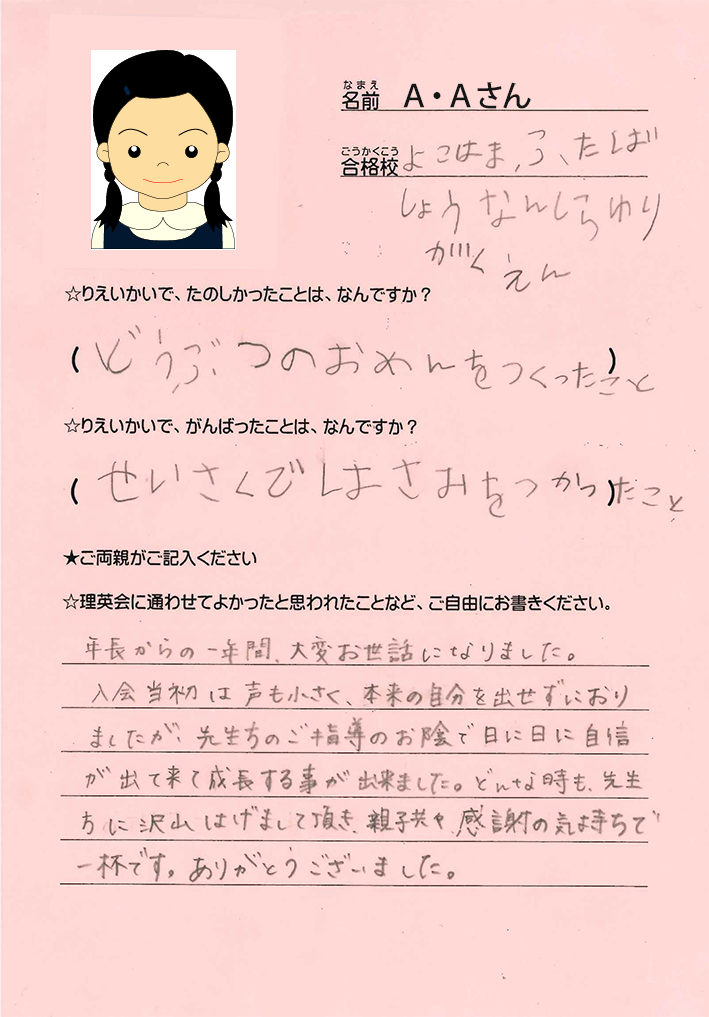 なまえ
名前 A・Aさん
ごうかくこう
合格校 よこはま、ふたば
しょうなんしらゆり
がくえん
☆りえいかいで、たのしかったことは、なんですか？
(どうぶつのおめんをつくったこと)
☆りえいかいで、がんばったことは、なんですか？
(せいさくではさみをつかったこと)
★ご両親がご記入ください
☆理英会に通わせてよかったと思われたことなど、ご自由にお書きください。
年長からの一年間、大変お世話になりました。
入会当初は声も小さく、本来の自分を出せずにおり
ましたが、先生方のご指導のお陰で日に日に自信
が出て来て成長する事が出来ました。どんな時も、先生
方に沢山はげまして頂き、親子共々、感謝の気持ちで
一杯です。ありがとうございました。